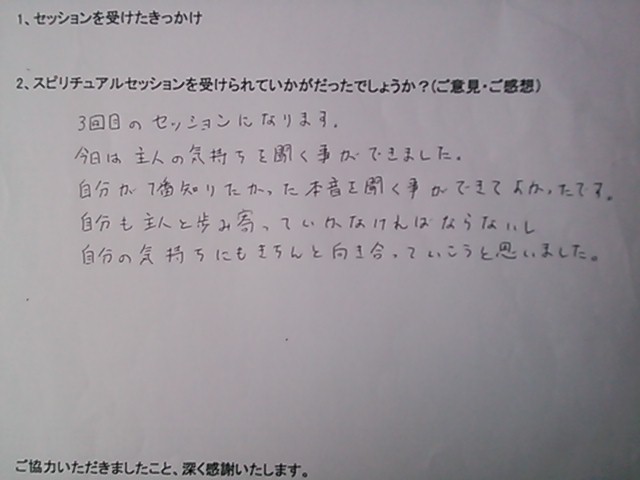 1、セッションを受けたきっかけ
2、スピリチュアルセッションを受けられていかがだったでしょうか？(ご意見・ご感想)
3回目のセッションになります。
今日は主人の気持ちを聞く事ができました。
自分が1番知りたかった本音を聞く事ができてよかったです。
自分も主人と歩み寄っていかなければならないし
自分の気持ちにもきちんと向き合っていこうと思いました。
ご協力いただきましたこと、深く感謝いたします。